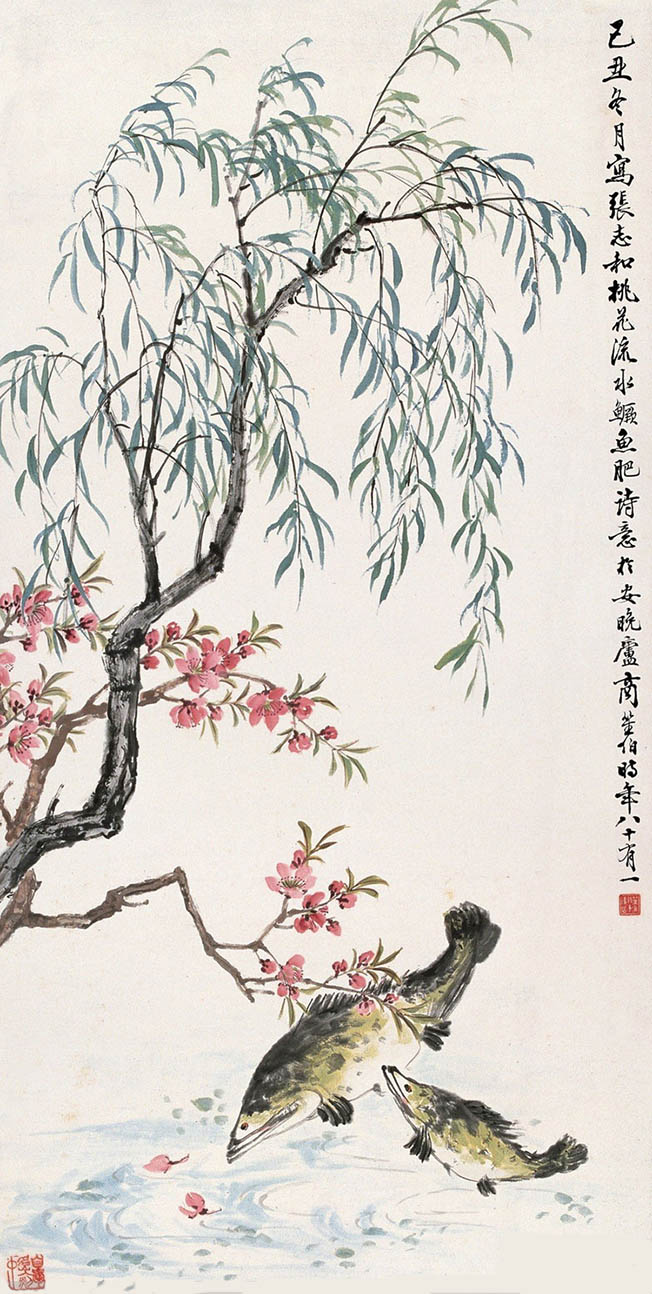 己丑冬月寫張志和桃花流水鱖魚肥诗意於安晚廬商笙伯時年八十有一